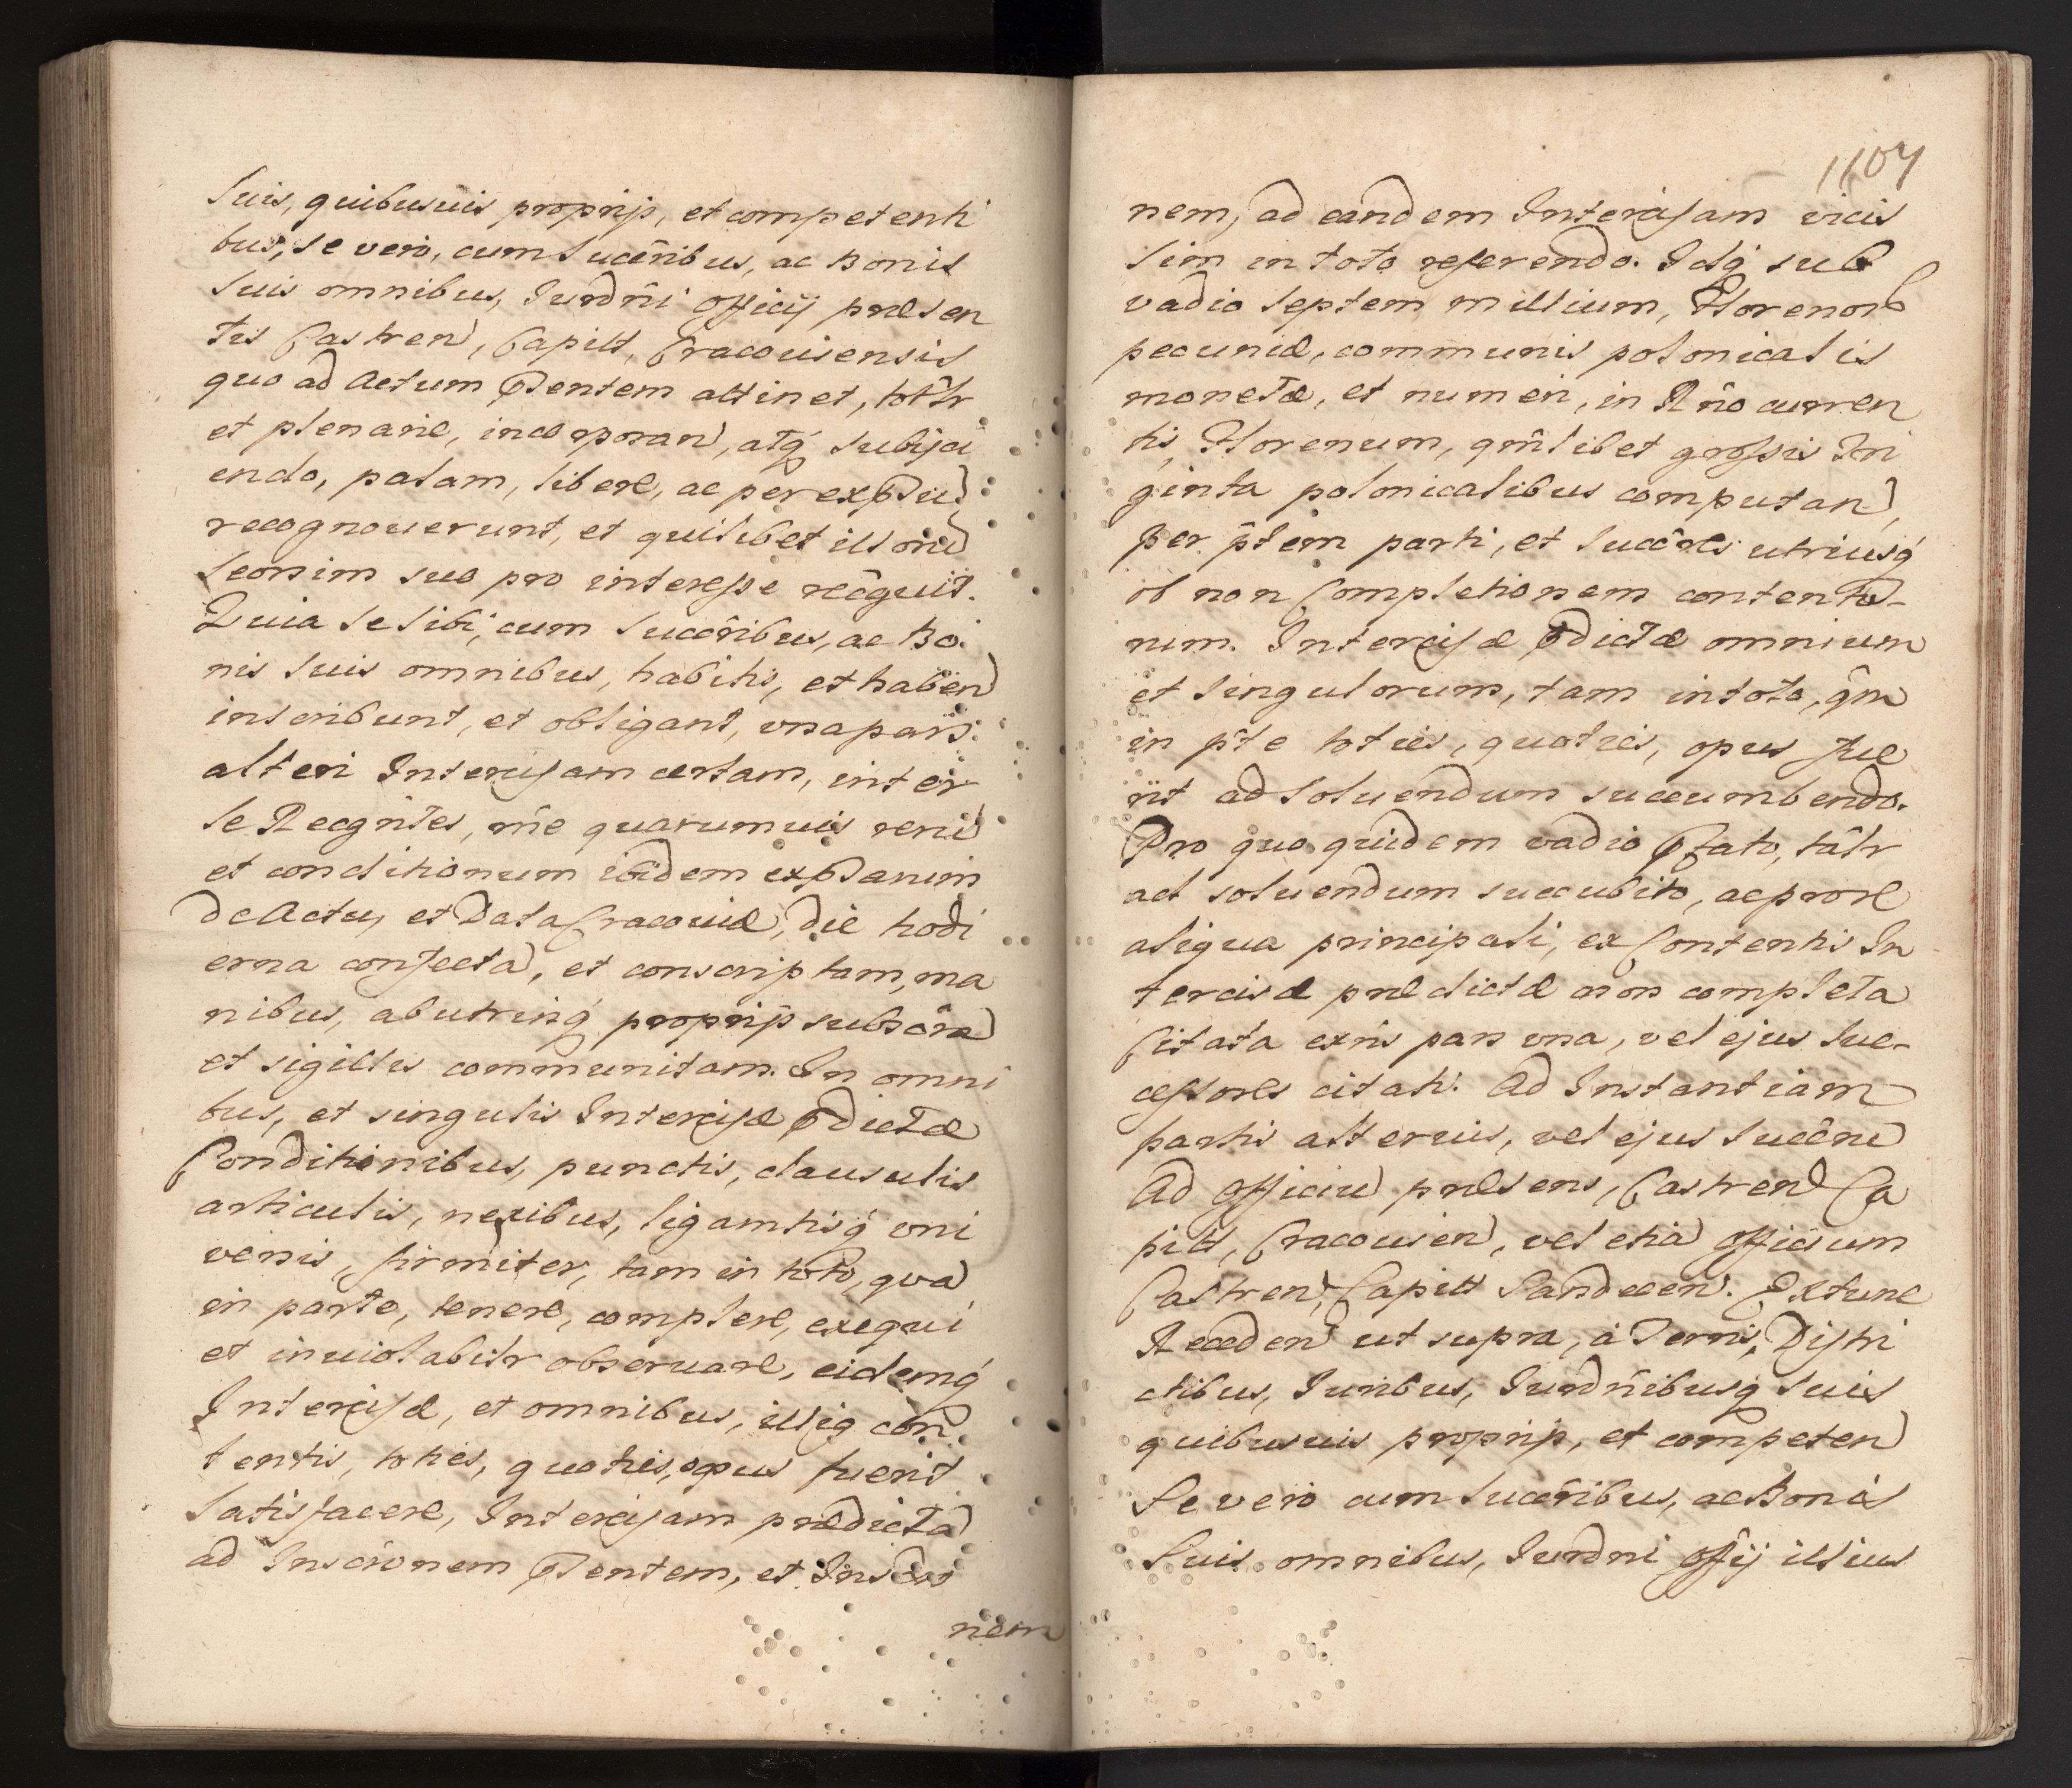 suis, quibusuis proprijs, et competenti
bus, se vero, cum succẽribus, ac Bonis
suis omnibus, Jurdñi officij præsen
tis Castren, Capitt, Cracouiensis
quo ad actum pñtentem attinet, totlr
et plenarie, incorporan, atq subijci
endo, palam, libere, ac per expssu
recognouerunt, et quilibet illoru
seorsim suo pro interesse recôguit.
Quia se sibi, cum succẽribus, ac Bo
nis suis omnibus, habitis, et haben
inscribunt, et obligant, vna pars
alteri Intercisam certam, inter
se Recgñtes, rñe quarumuis reru
et conditionum ibidem expssarum
de Actu, et Data Cracouiæ, die hodi
erna confecta, et conscriptam, ma
nibus, ab utrinq proprijs subscra
et sigillis communitam. In omni
bus, et singulis Intercisæ pdictæ
Conditionibus, punctis, clausulis
articulis, nexibus, ligamtisq vni
versis, firmiter, tam in toto, qua
in parte, tenere, complere, exequi
et inuiolabilr obseruare, eidemq
Intercisæ, et omnibus, illiq con
tentis, toties, quoties, opus fuerit
satisfacere, Intercisam prædicta
ad Inscrõnem pñtentem, et Inscrõ
nem
1107
nem, ad eandem Intercisam vicis
sim in toto referendo. Idq sub
vadio septem millium, Florenor
pecuniæ, communis polonicalis
monetæ, et numeri, in Rño curren
tis, Florenum, qmlibet grossis Tri
ginta polonicalibus computan,
per ptem parti, et succêres utriusq
ob non Completionem contento-
rum. Intercisæ pdictæ omnium
et singulorum, tam in toto, qm
in pte toties, quoties, opus fue
rit ad soluendum succumbendo.
Pro quo quidem vadio pfato, talr
ad soluendum succubito, ac pro re
aliqua principali, ex Contentis In
tercisæ prædictæ non completa
Citata exñs pars vna, vel ejus suc-
cessores citati. Ad Instantiam
partis alterius, vel ejus succêru
Ad officiu præsens, Castren Ca
pitt, Cracouien, vel etia officium
Castren, Capitt Sandecen. Extunc
Receden ut supra, á Terris, Distri
ctibus, Juribus, Jurdñibusq suis
quibusuis proprijs, et competen
Se vero cum succẽribus, ac Bonis
suis omnibus, Jurdni offij illius